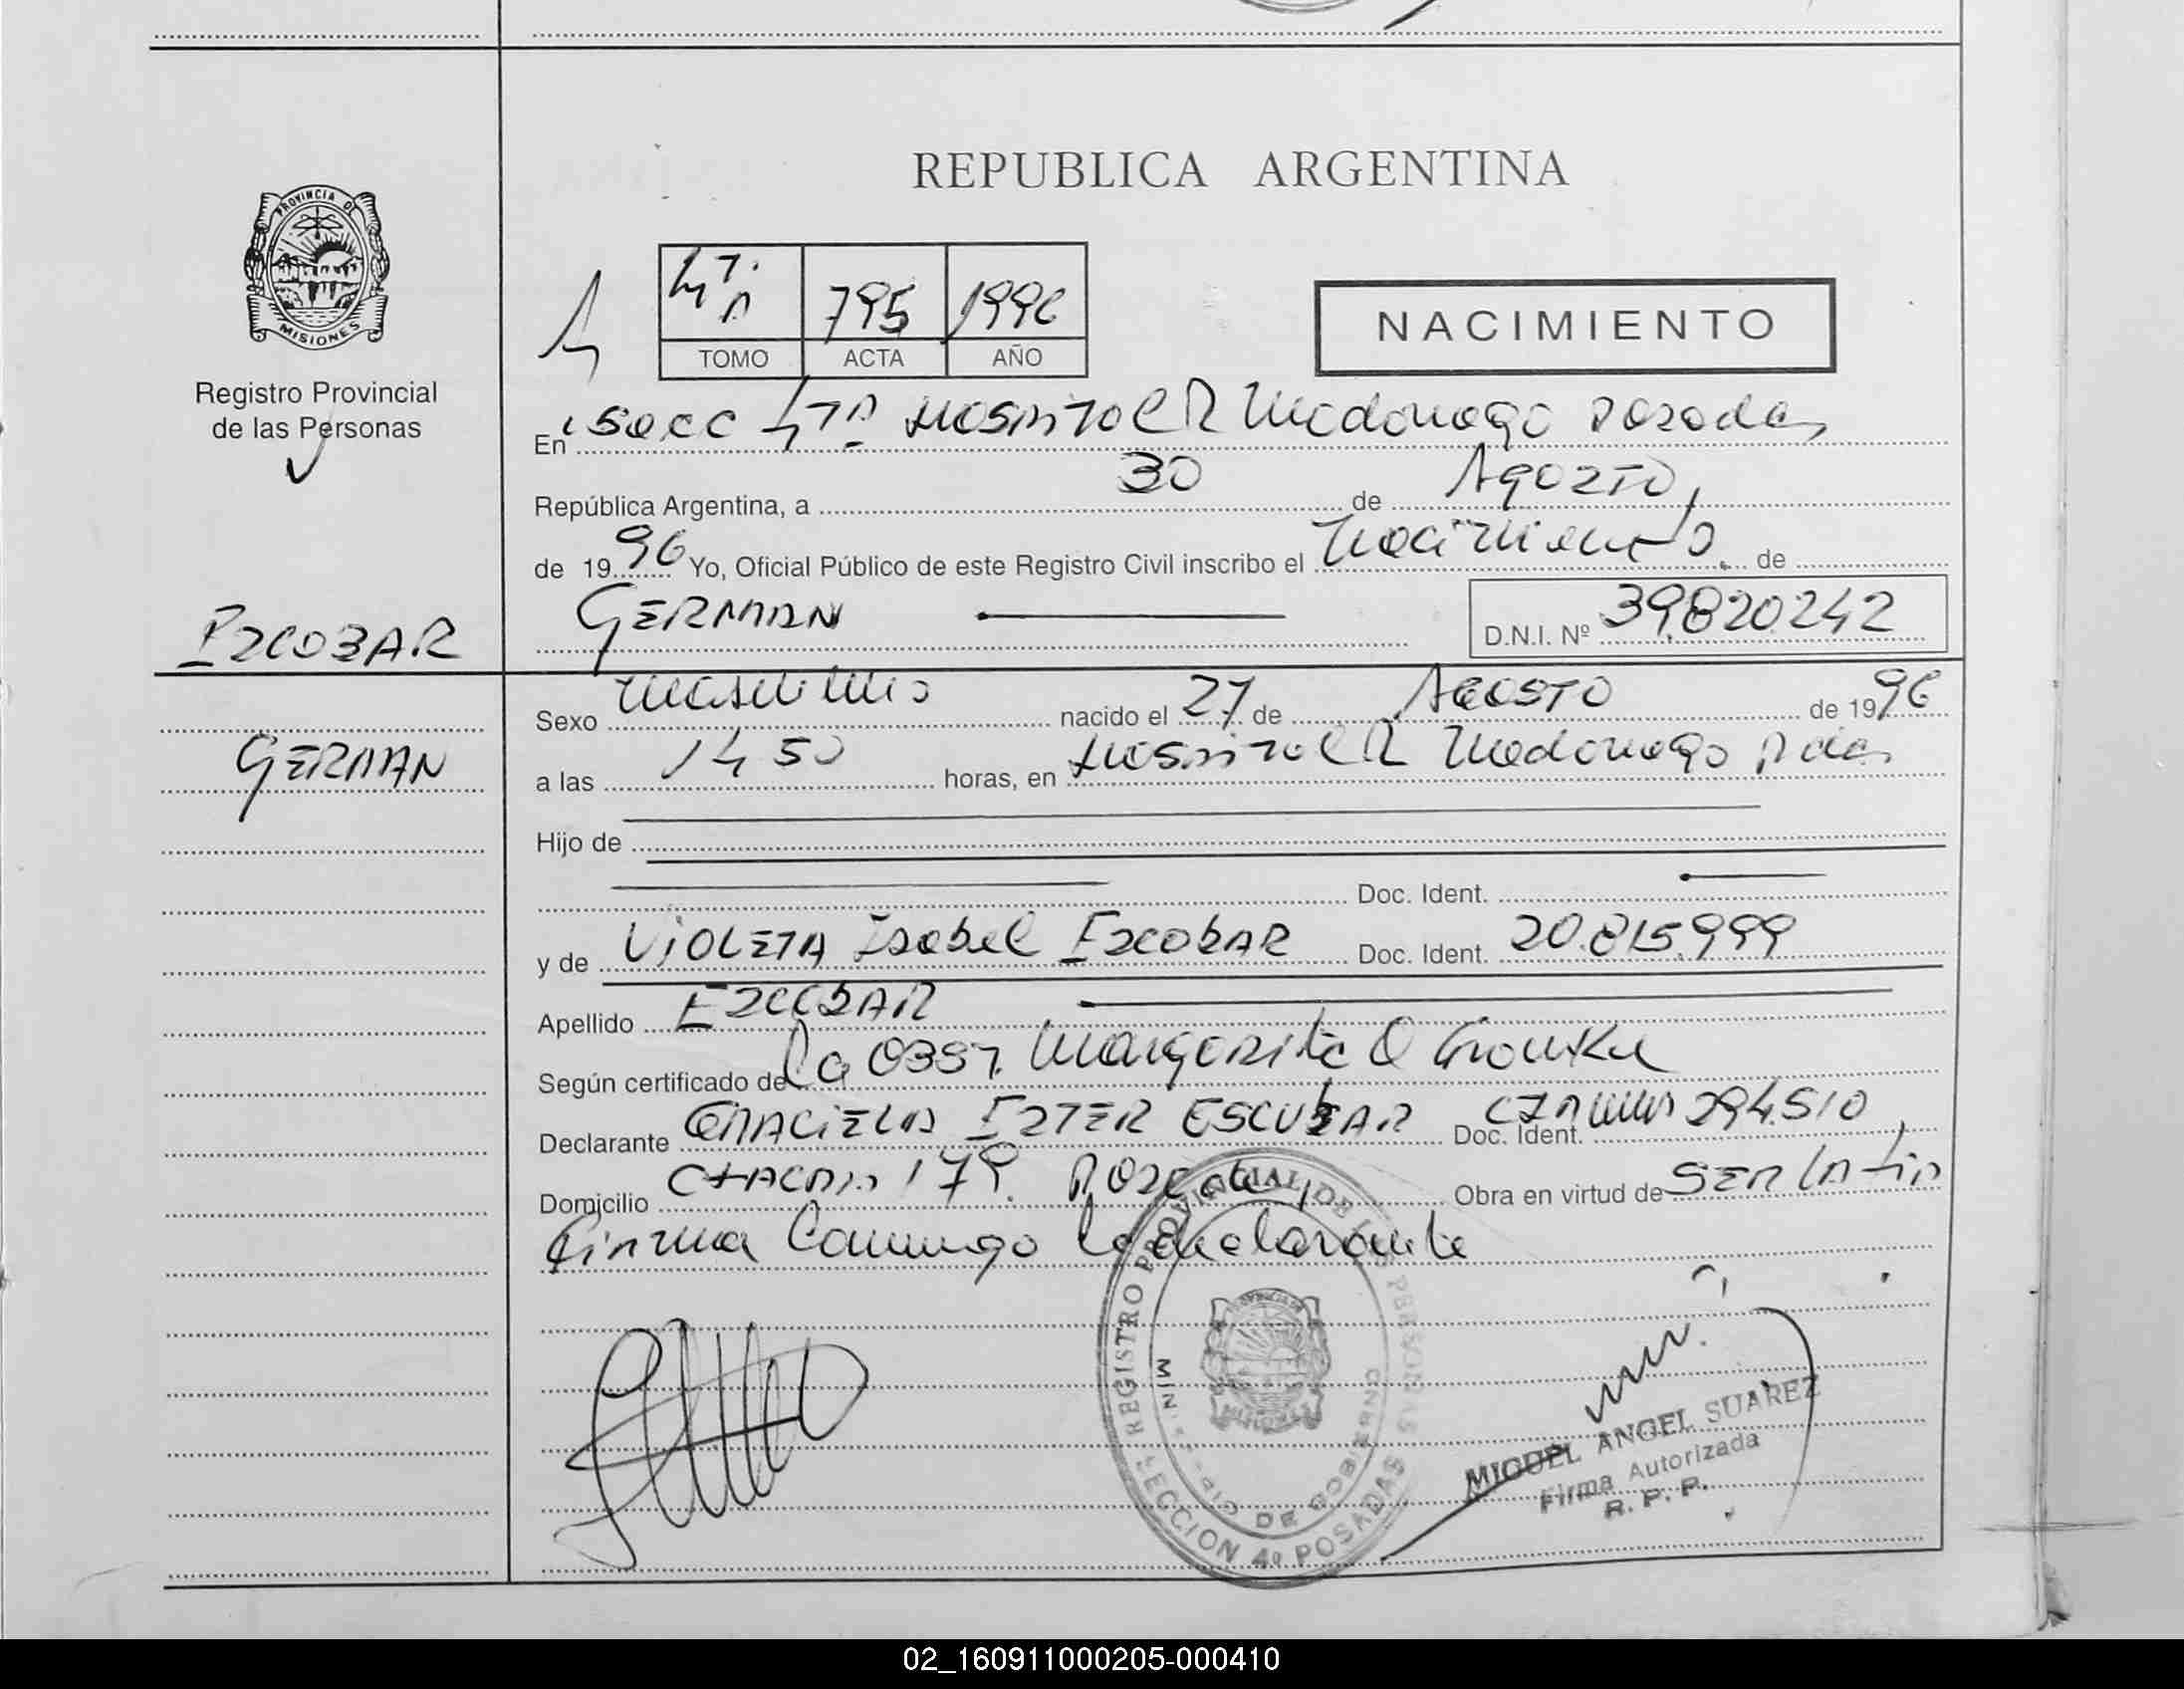 REPUBLICA ARGENTINA
PROVINCIA DE
MISIONES
Registro Provincial
de las Personas
4ta 795 1996
TOMO ACTA AÑO
NACIMIENTO
En Secc 4ta Hospital R Madonago Posadas
República Argentina, a 30 de Agosto
de 1996 Yo, Oficial Público de este Registro Civil inscribo el Nacimiento de
ESCOBAR
GERMAN
GERMAN D.N.I. Nº 39.820.242
Sexo Masculino nacido el 27 de AGOSTO de 1996
a las 14 50 horas, en Hospital R Madonago Pdas
Hijo de
Doc. Ident.
y de VIOLETA Isabel ESCOBAR Doc. Ident. 20.815.999
Apellido ESCOBAR
Según certificado de la Obst. Margarita
Declarante GRACIELA ESTER ESCOBAR Doc. Ident. 294.510
Domicilio CHACRA 179. Posadas Obra en virtud de SER LA tia
Firma Conmigo la declarante
REGISTRO PROVINCIAL DE LAS PERSONAS
MINISTERIO DE GOBIERNO
SECCION 4º POSADAS
MIGUEL ANGEL SUAREZ
Firma Autorizada
R. P. P.
02_160911000205-000410